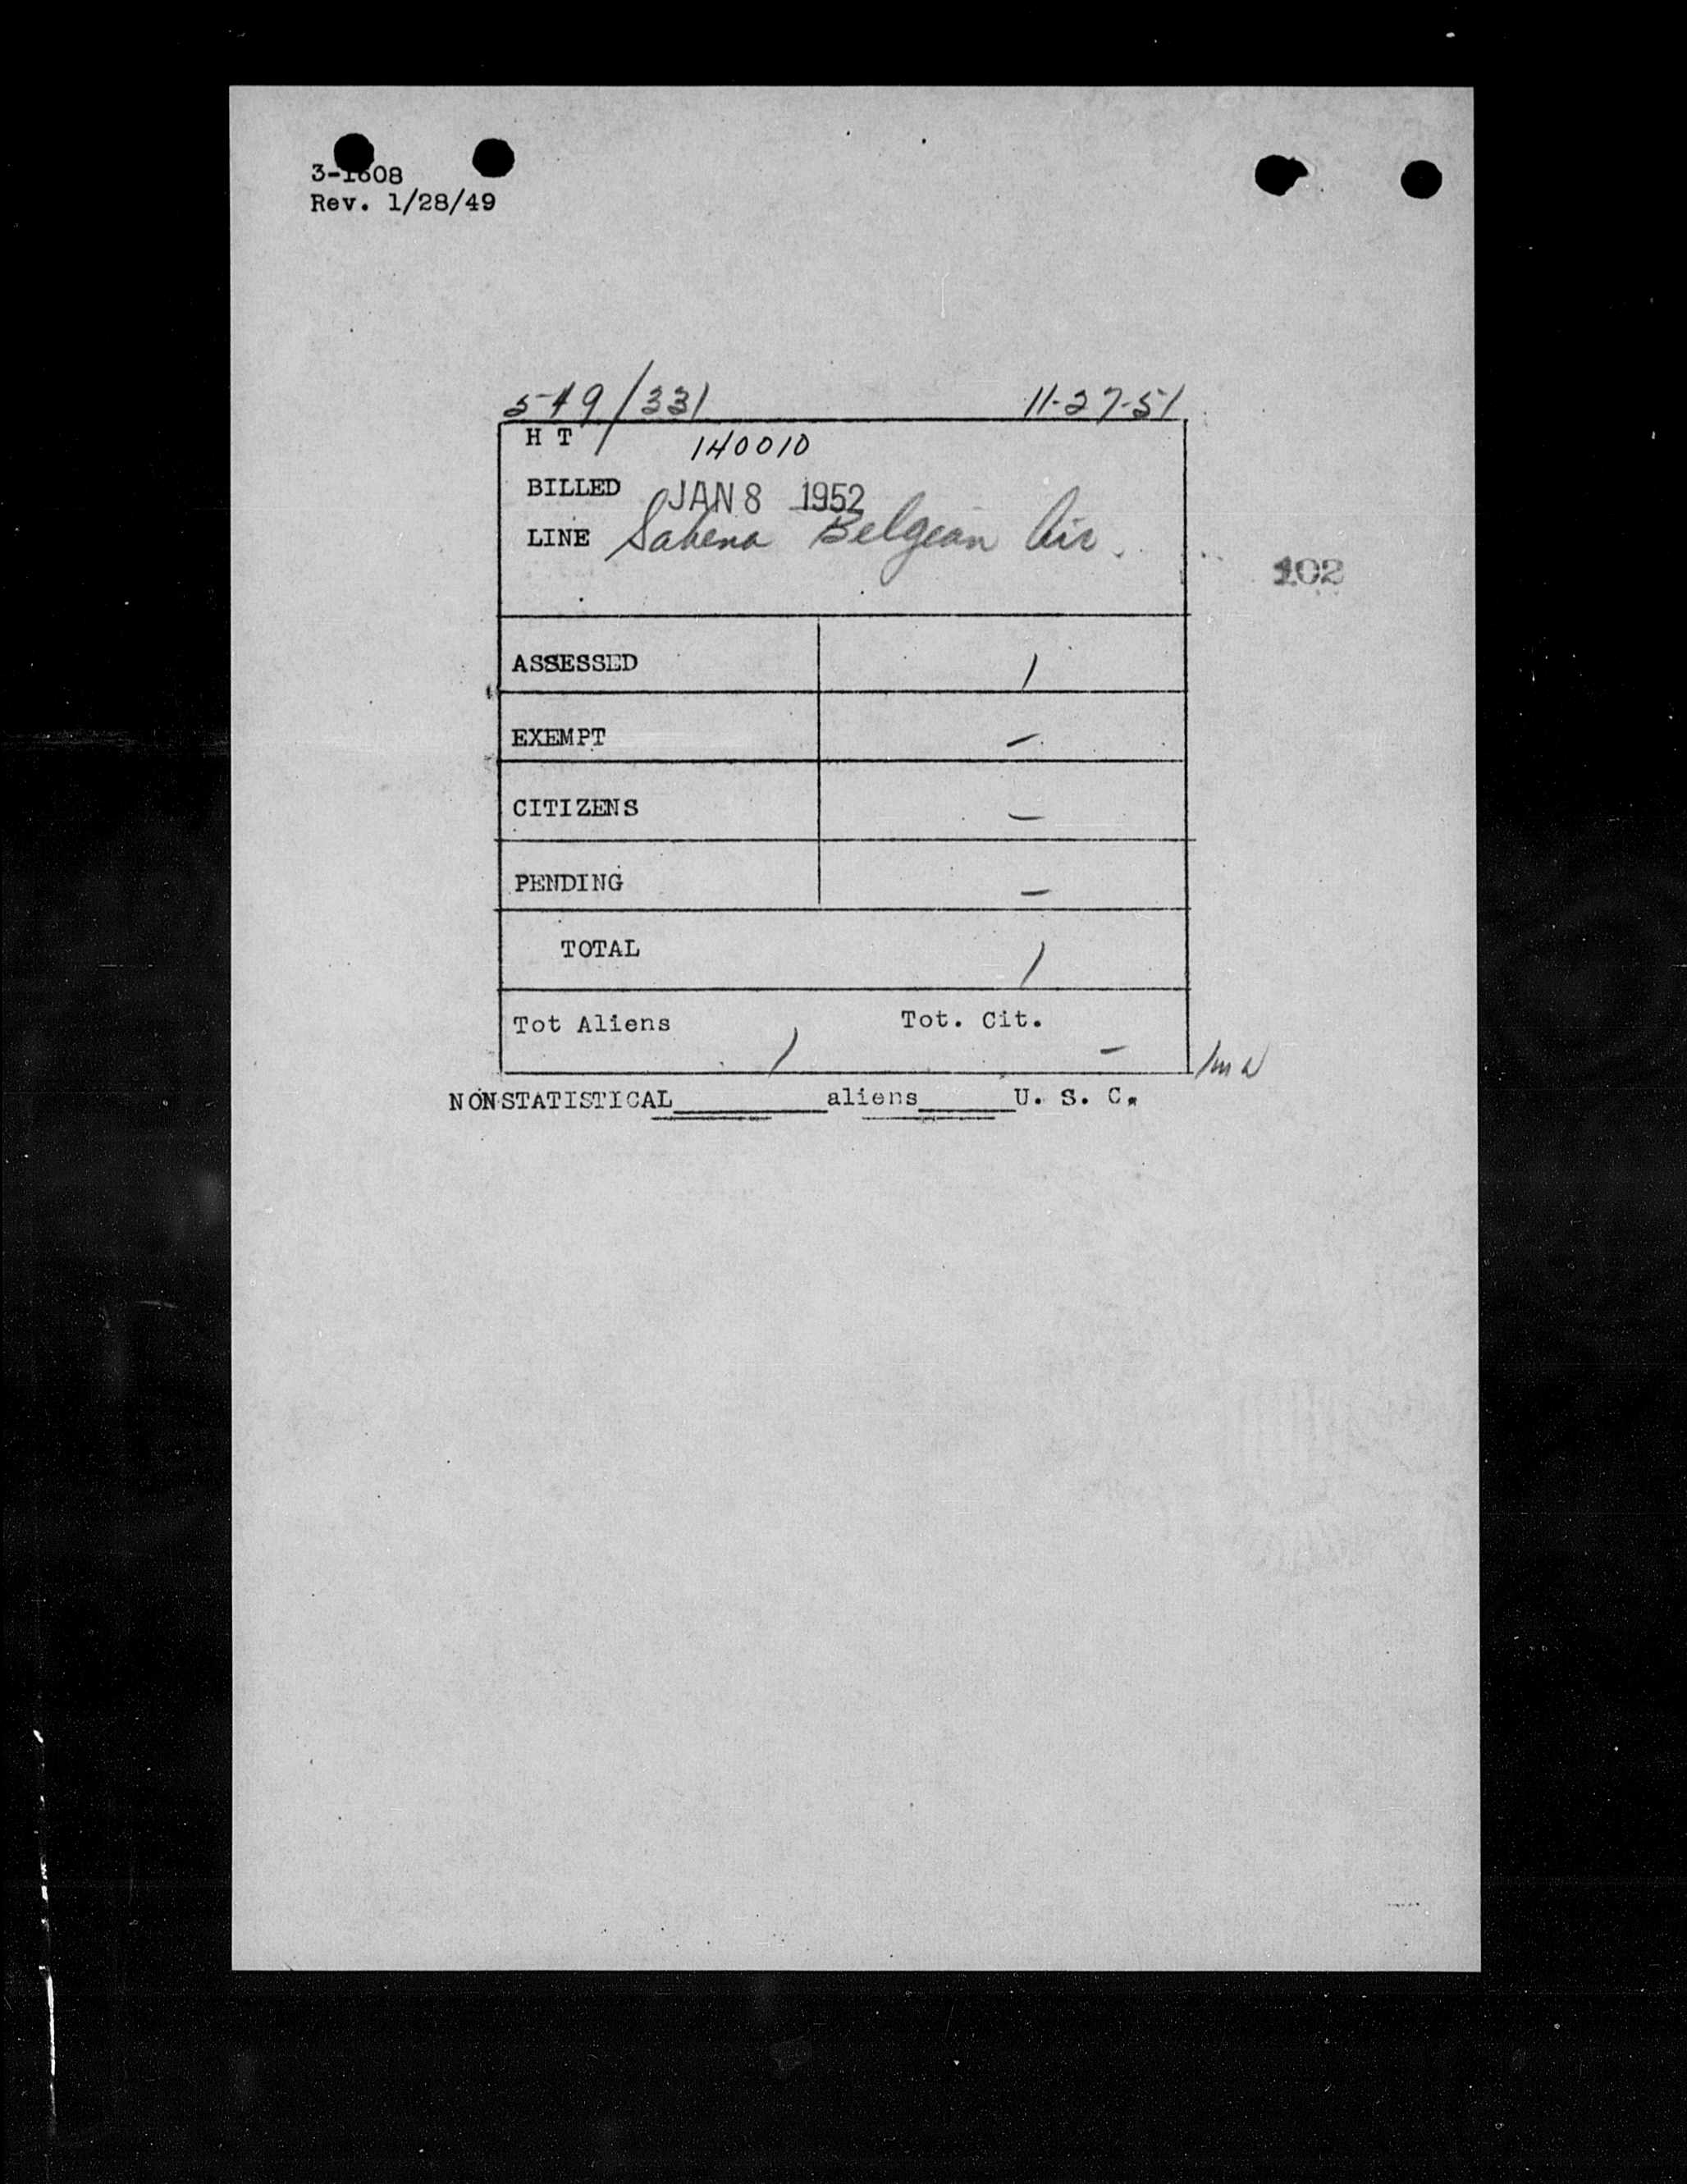 3-1608
Rev. 1/28/49
549/331 11-27-51
H T 140010
BILLED JAN 8 1952
LINE Sabena Belgean Air.
102
ASSESSED 1
EXEMPT -
CITIZENS -
PENDING -
TOTAL 1
Tot Aliens 1 Tot. Cit. -
NONSTATISTICAL________aliens_____U. S. C.